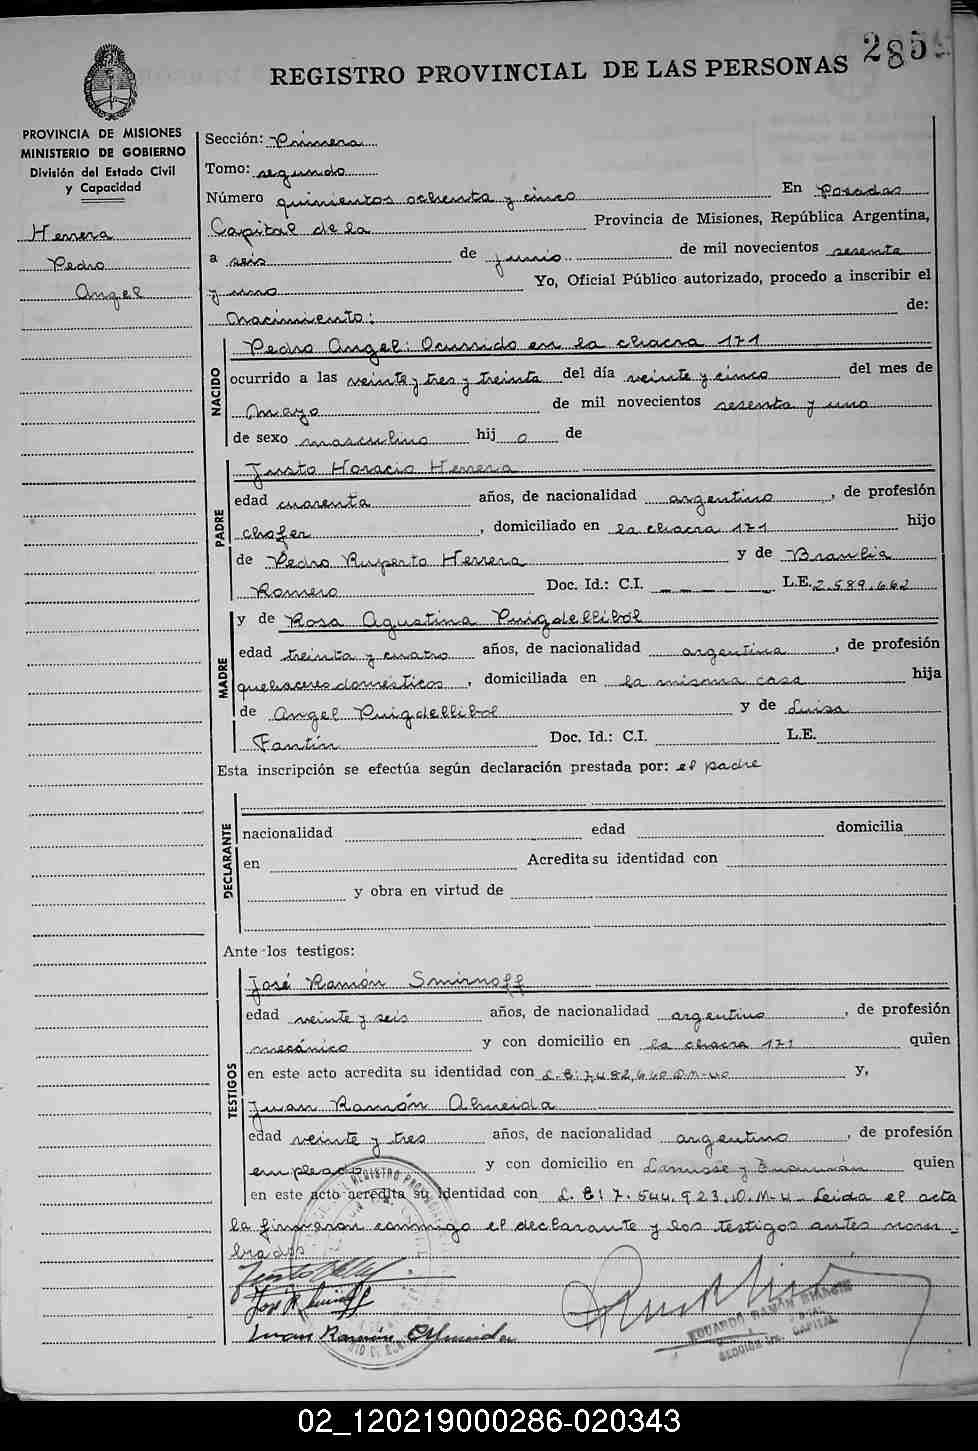 285
REGISTRO PROVINCIAL DE LAS PERSONAS
PROVINCIA DE MISIONES
MINISTERIO DE GOBIERNO
División del Estado Civil
y Capacidad
Herrera
Pedro
Angel
Sección: Primera
Tomo: segundo
Número quinientos ochenta y cinco En Posadas
Capital de la Provincia de Misiones, República Argentina,
a seis de junio de mil novecientos sesenta
y uno Yo, Oficial Público autorizado, procedo a inscribir el
nacimiento: de:
NACIDO
Pedro Angel: Ocurrido en la chacra 171
ocurrido a las veinte y tres y treinta del día veinte y cinco del mes de
mayo de mil novecientos sesenta y uno
de sexo masculino hij o de
PADRE
Justo Horacio Herrera
edad cuarenta años, de nacionalidad argentino, de profesión
chofer, domiciliado en la chacra 171 hijo
de Pedro Ruperto Herrera y de Braulia
Romero Doc. Id.: C.I. L.E. 2.589.662
MADRE
y de Rosa Agustina Puigdellibol
edad treinta y cuatro años, de nacionalidad argentina, de profesión
quehaceres domésticos, domiciliada en la misma casa hija
de Angel Puigdellibol y de Luisa
Fantín Doc. Id.: C.I. L.E.
Esta inscripción se efectúa según declaración prestada por: el padre
DECLARANTE
nacionalidad edad domicilia
en Acredita su identidad con
y obra en virtud de
Ante los testigos:
TESTIGOS
José Ramón Smirnoff
edad veinte y seis años, de nacionalidad argentino, de profesión
mecánico y con domicilio en la chacra 171 quien
en este acto acredita su identidad con L.E: 7.482.640 D.M-40 y,
Juan Ramón Almeida
edad veinte y tres años, de nacionalidad argentino, de profesión
empleado y con domicilio en Lanusse y quien
en este acto acredita su identidad con L.E: 7.544.923.D.M-4- Leida el acta
la firmaron conmigo el declarante y los testigos antes nom
brados
Juan Ramón Almeida
EDUARDO RAMÓN
SECCION 1ra. CAPITAL
02_120219000286-020343